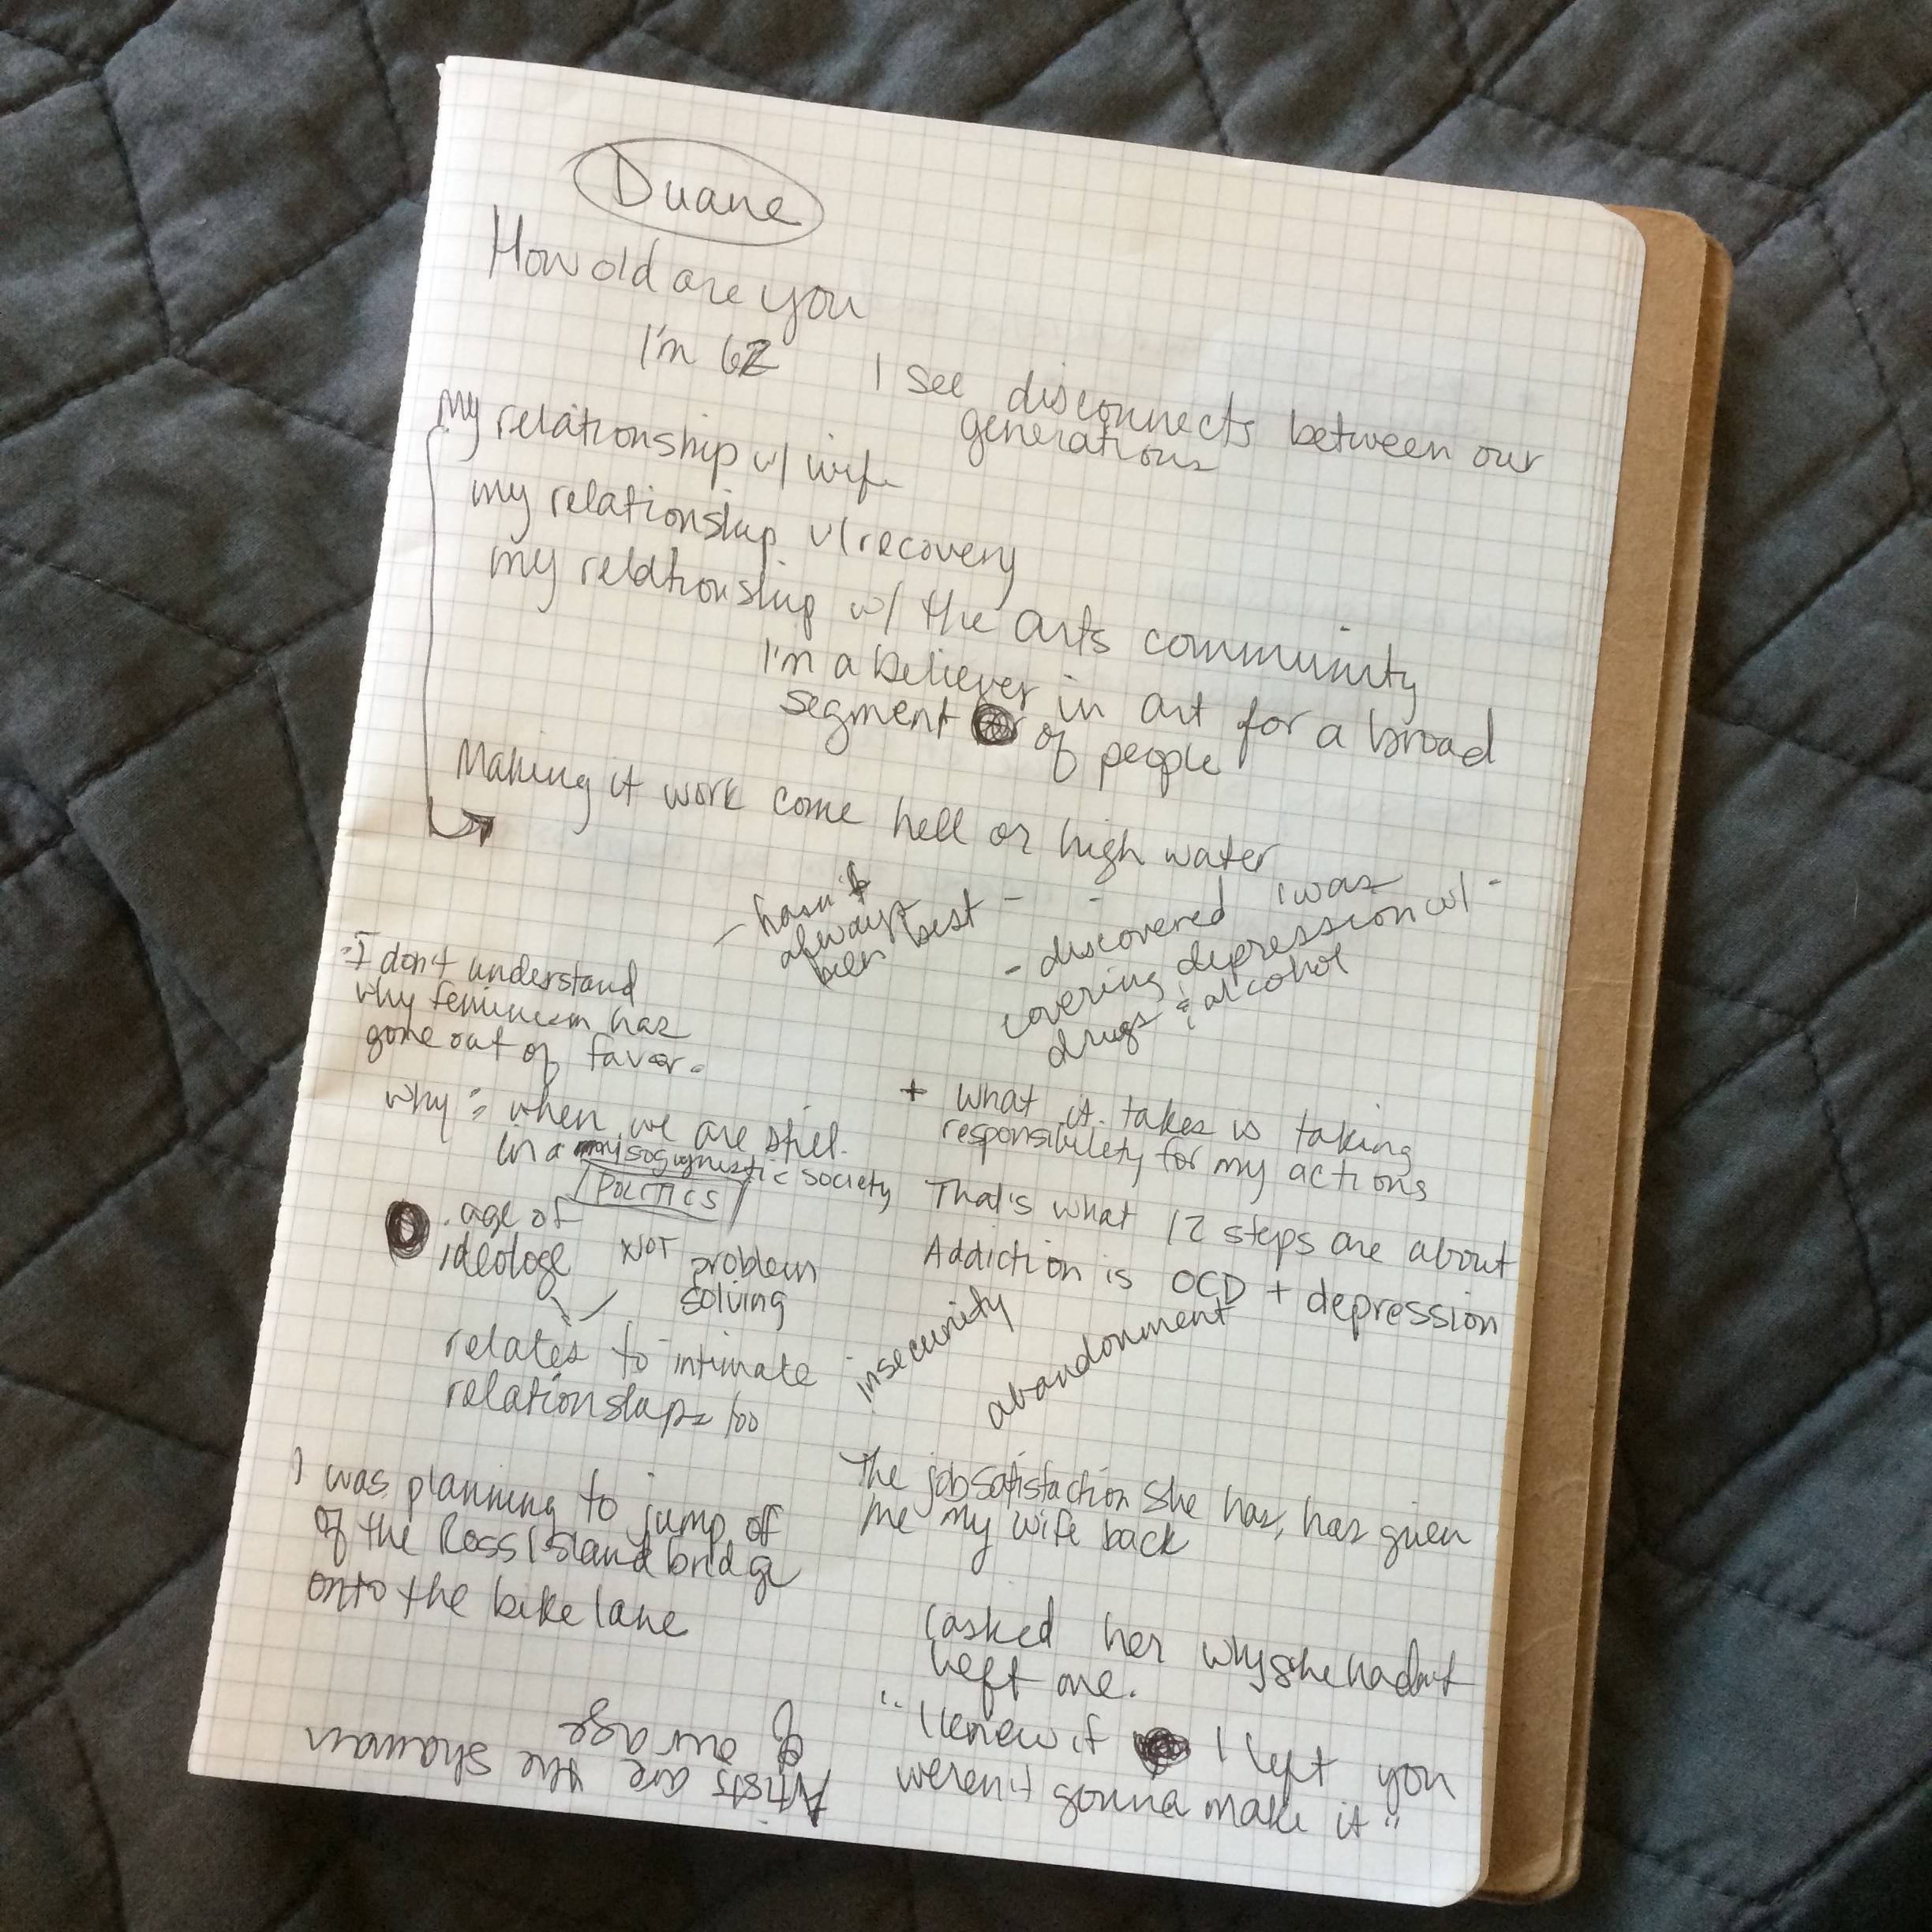 Duane
How old are you
I'm 62
I see disconnects between our
generations
my relationship w/ wife
my relationship w/ recovery
my relationship w/ the arts community
I'm a believer in art for a broad
segment of people
Making it work come hell or high water
- hasn't
always
been best -
- discovered I was
covering depression w/ -
drugs & alcohol
"I don't understand
why feminism has
gone out of favor.
why = when we are still
in a misogynestic society
POLITICS
age of
ideologe NOT problem
solving
relates to intimate
relationships too
+ What it takes is taking
responsibility for my actions
That's what 12 steps are about
Addiction is OCD + depression
insecurity
abandonment
I was planning to jump off
of the Ross Island bridge
onto the bike lane
The job satisfaction she has, has given
me my wife back
I asked her why she hadn't
left me.
"I knew if I left you
weren't gonna make it"
Artists are the shaman
of our age